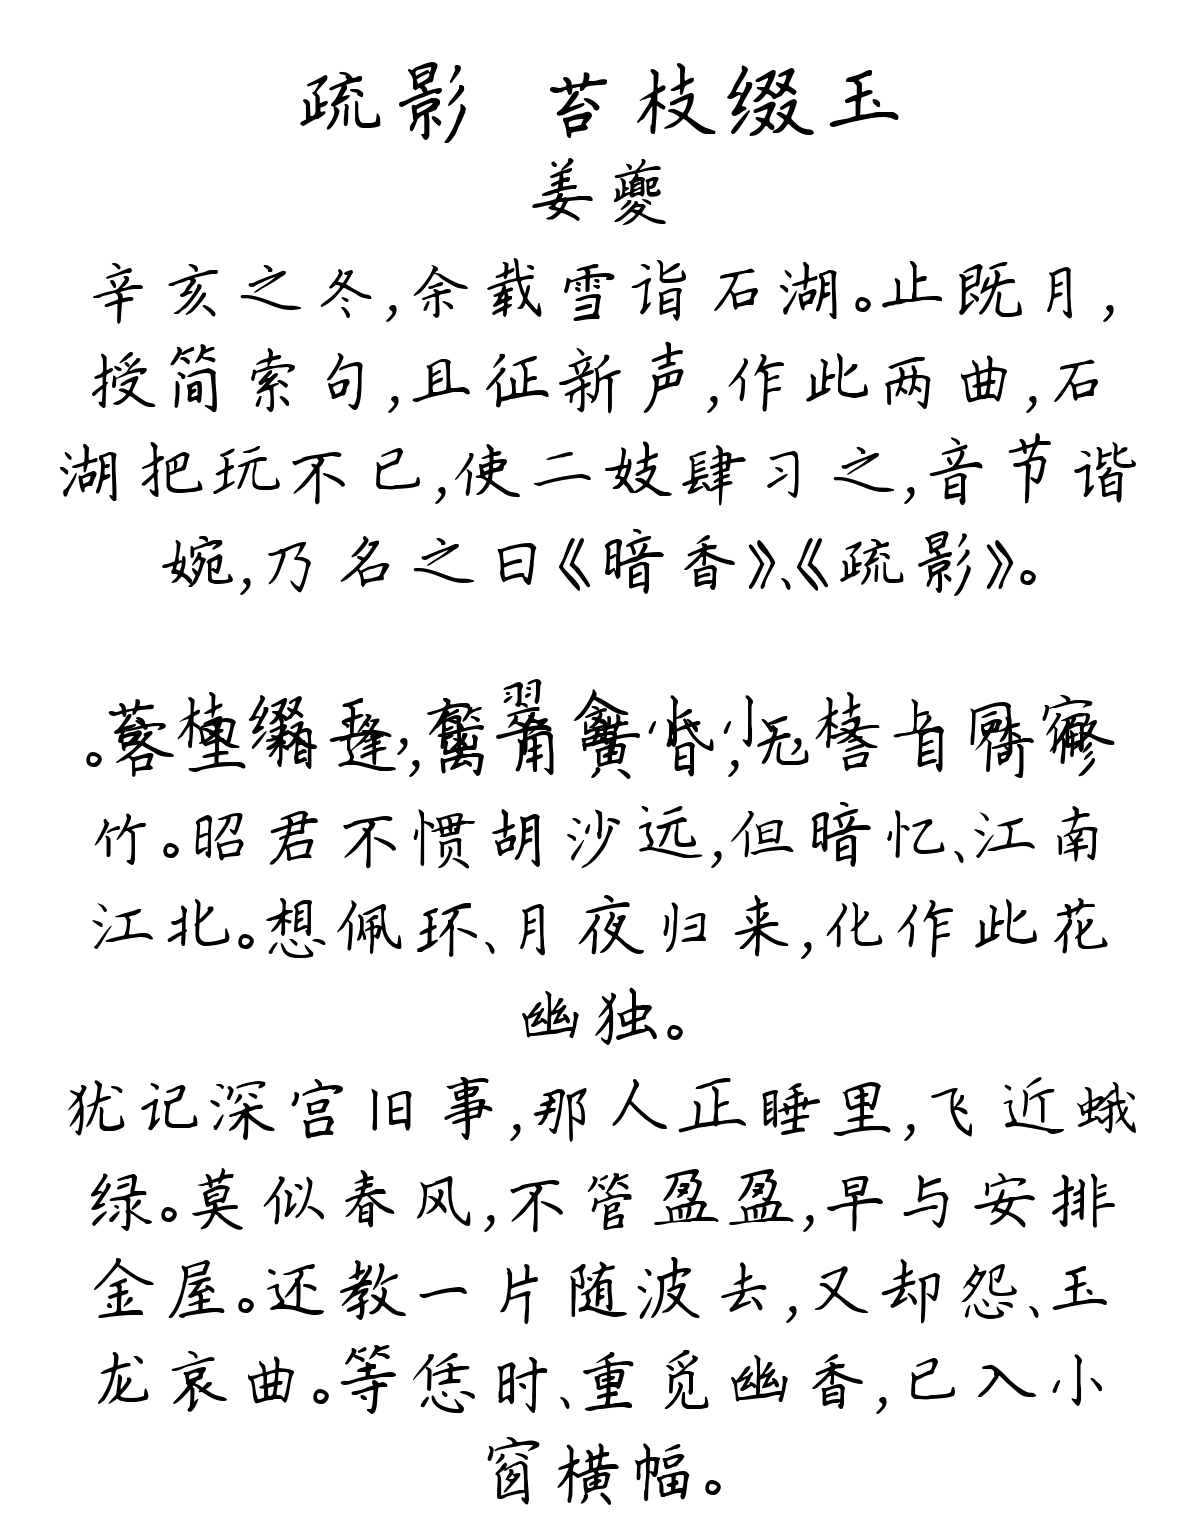 疏影 苔枝缀玉
姜夔
辛亥之冬,余载雪诣石湖。止既月,
授简索句,且征新声,作此两曲,石
湖把玩不已,使二妓肆习之,音节谐
婉,乃名之曰《暗香》、《疏影》。
苔枝缀玉,有翠禽小小,枝上同宿
。客里相逢,篱角黄昏,无言自倚修
竹。昭君不惯胡沙远,但暗忆、江南
江北。想佩环、月夜归来,化作此花
幽独。
犹记深宫旧事,那人正睡里,飞近蛾
绿。莫似春风,不管盈盈,早与安排
金屋。还教一片随波去,又却怨、玉
龙哀曲。等恁时、重觅幽香,已入小
窗横幅。